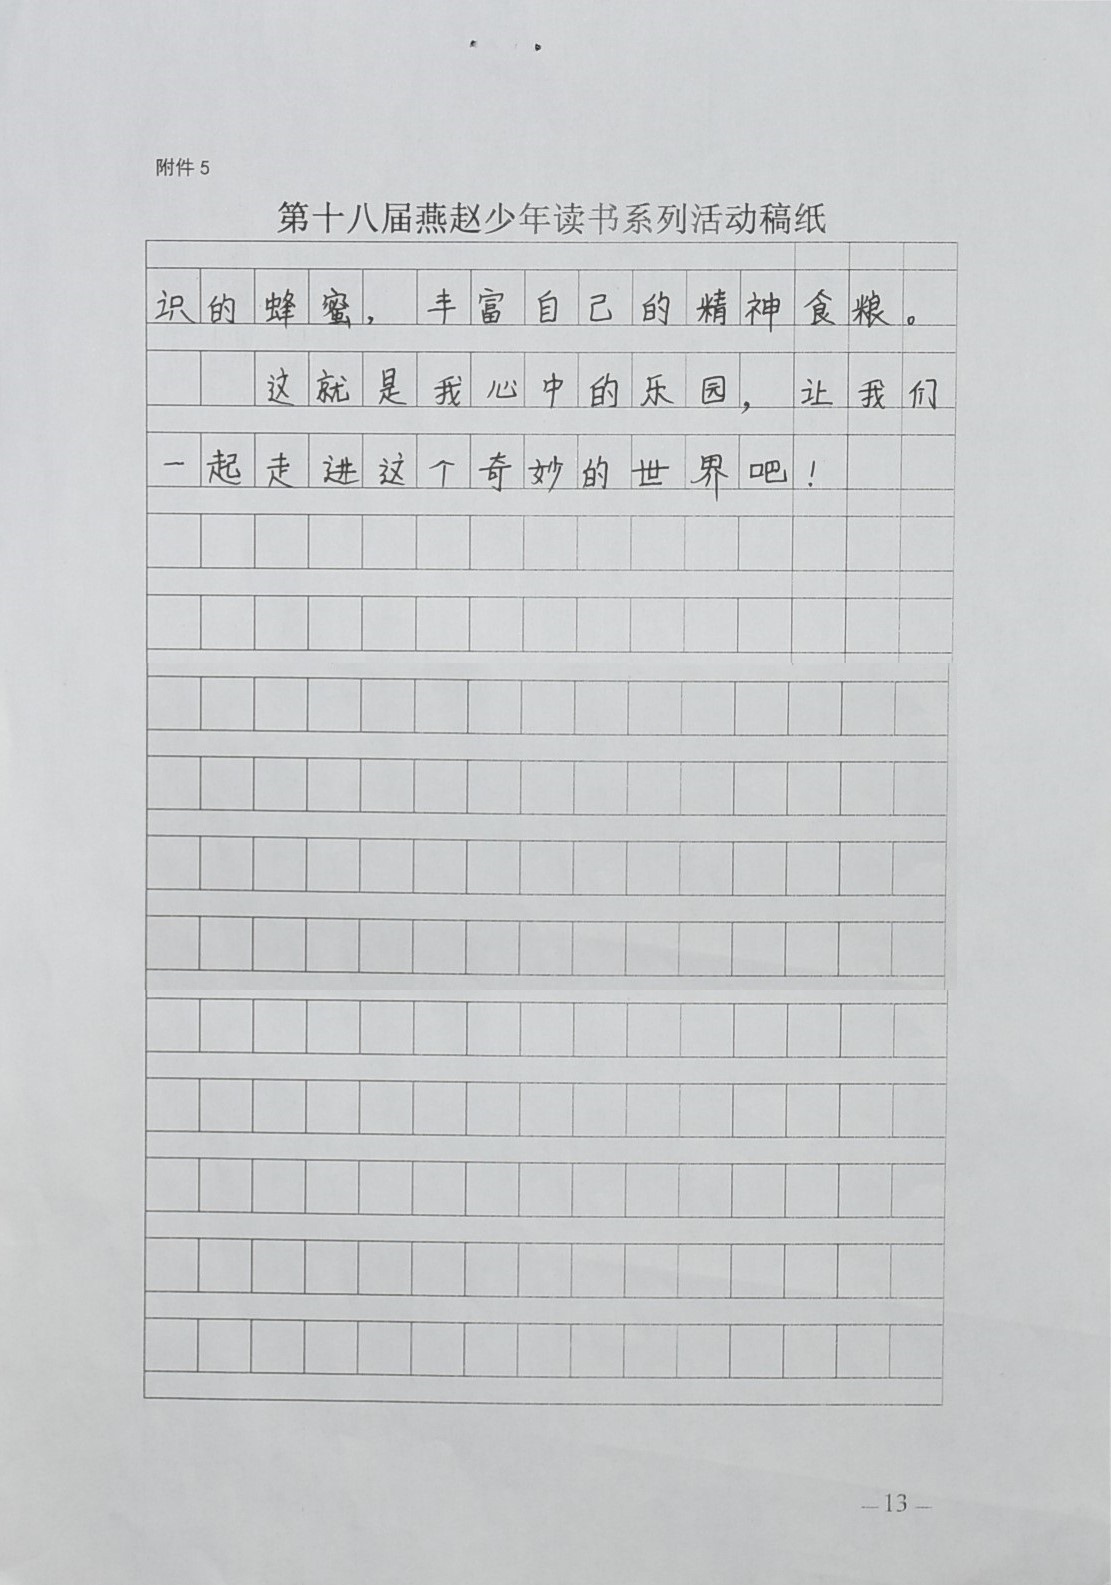 附件 5
第十八届燕赵少年读书系列活动稿纸
识的蜂蜜，丰富自己的精神食粮。
这就是我心中的乐园，让我们
一起走进这个奇妙的世界吧！
—13—